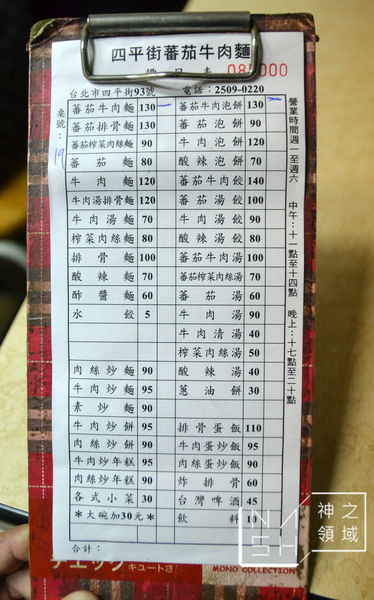 四平街蕃茄牛肉麵
價目表 085000
台北市四平街93號 電話：2509-0220
桌號：19
蕃茄牛肉麵 130
蕃茄排骨麵 130
蕃茄榨菜肉絲麵 90
蕃茄麵 80
牛肉麵 120
牛肉湯排骨麵 120
牛肉湯麵 70
榨菜肉絲麵 80
排骨麵 100
酸辣麵 70
酢醬麵 60
水餃 5
肉絲炒麵 90
牛肉炒麵 95
素炒麵 90
牛肉炒餅 95
肉絲炒餅 90
牛肉炒年糕 95
肉絲炒年糕 90
各式小菜 30
＊大碗加30元＊
合計：
蕃茄牛肉泡餅 130
蕃茄泡餅 90
牛肉泡餅 120
酸辣泡餅 70
蕃茄牛肉餃 140
蕃茄湯餃 100
牛肉湯餃 90
酸辣湯餃 80
蕃茄牛肉湯 100
蕃茄榨菜肉絲湯 70
蕃茄湯 60
牛肉湯 90
牛肉清湯 40
榨菜肉絲湯 50
酸辣湯 40
蔥油餅 30
排骨蛋飯 110
牛肉蛋炒飯 95
肉絲蛋炒飯 90
炸排骨 60
台灣啤酒 45
飲料
營業時間週一至週六 中午：十一點至十四點 晚上：十七點至二十點
チェック キュートさ
MONO COLLECTION
神之領域